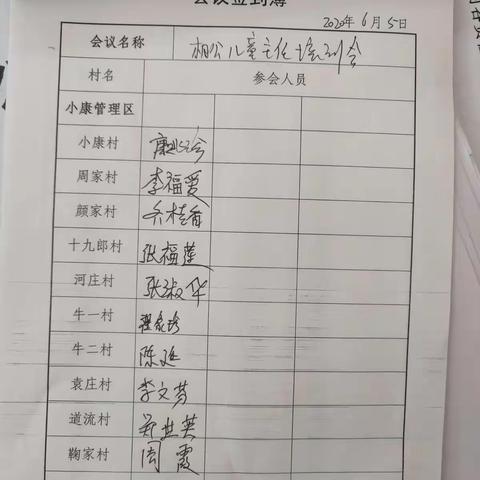 会议签到簿
2020年6月5日
会议名称 相公儿童主任培训会
村名 参会人员
小康管理区
小康村
周家村 李福爱
颜家村 乔桂香
十九郎村 张福莲
河庄村 张淑华
牛一村
牛二村 陈延
袁庄村 李文芬
道流村 郑世英
鞠家村 周霞